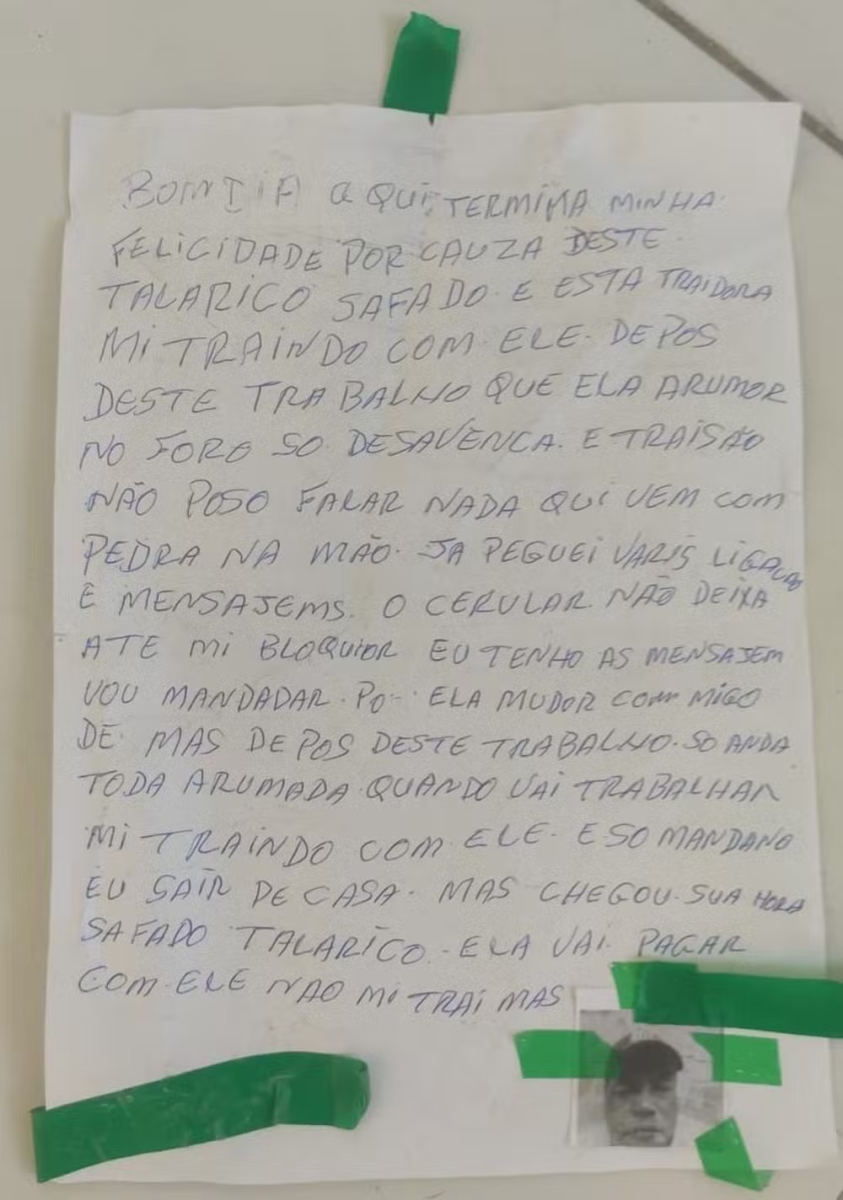 BOM DIA AQUI TERMINA MINHA
FELICIDADE POR CAUZA DESTE
TALARICO SAFADO E ESTA TRAIDORA
MI TRAINDO COM ELE. DEPOS
DESTE TRABALHO QUE ELA ARUMOR
NO FORO SO DESAVENCA. E TRAISÃO
NÃO POSO FALAR NADA QUI VEM COM
PEDRA NA MÃO. JA PEGUEI VARIS LIGACAO
E MENSAJEMS. O CERULAR NÃO DEIXA
ATE MI BLOQUIOR EU TENHO AS MENSAJEM
VOU MANDADAR. PO- ELA MUDOR COM MIGO
DE MAS DEPOS DESTE TRABALHO. SO ANDA
TODA ARUMADA QUANDO VAI TRABALHAR
MI TRAINDO COM ELE. E SO MANDANO
EU SAIR DE CASA. MAS CHEGOU SUA HORA
SAFADO TALARICO. ELA VAI PAGAR
COM ELE NÃO MI TRAI MAS